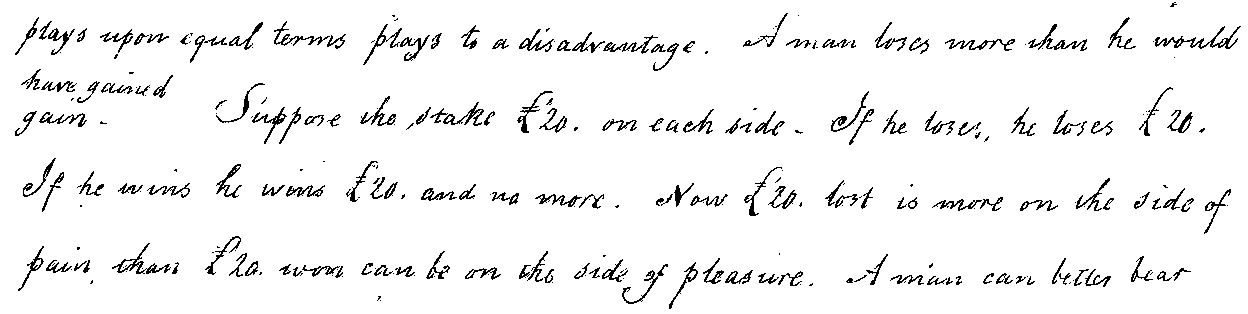 plays upon equal terms plays to a disadvantage. A man loses more than he would
have gained
gain - Suppose the stake £20. on each side - If he loses, he loses £20.
If he wins he wins £20. and no more. Now £20. lost is more on the side of
pain than £20. won can be on the side of pleasure. A man can better bear